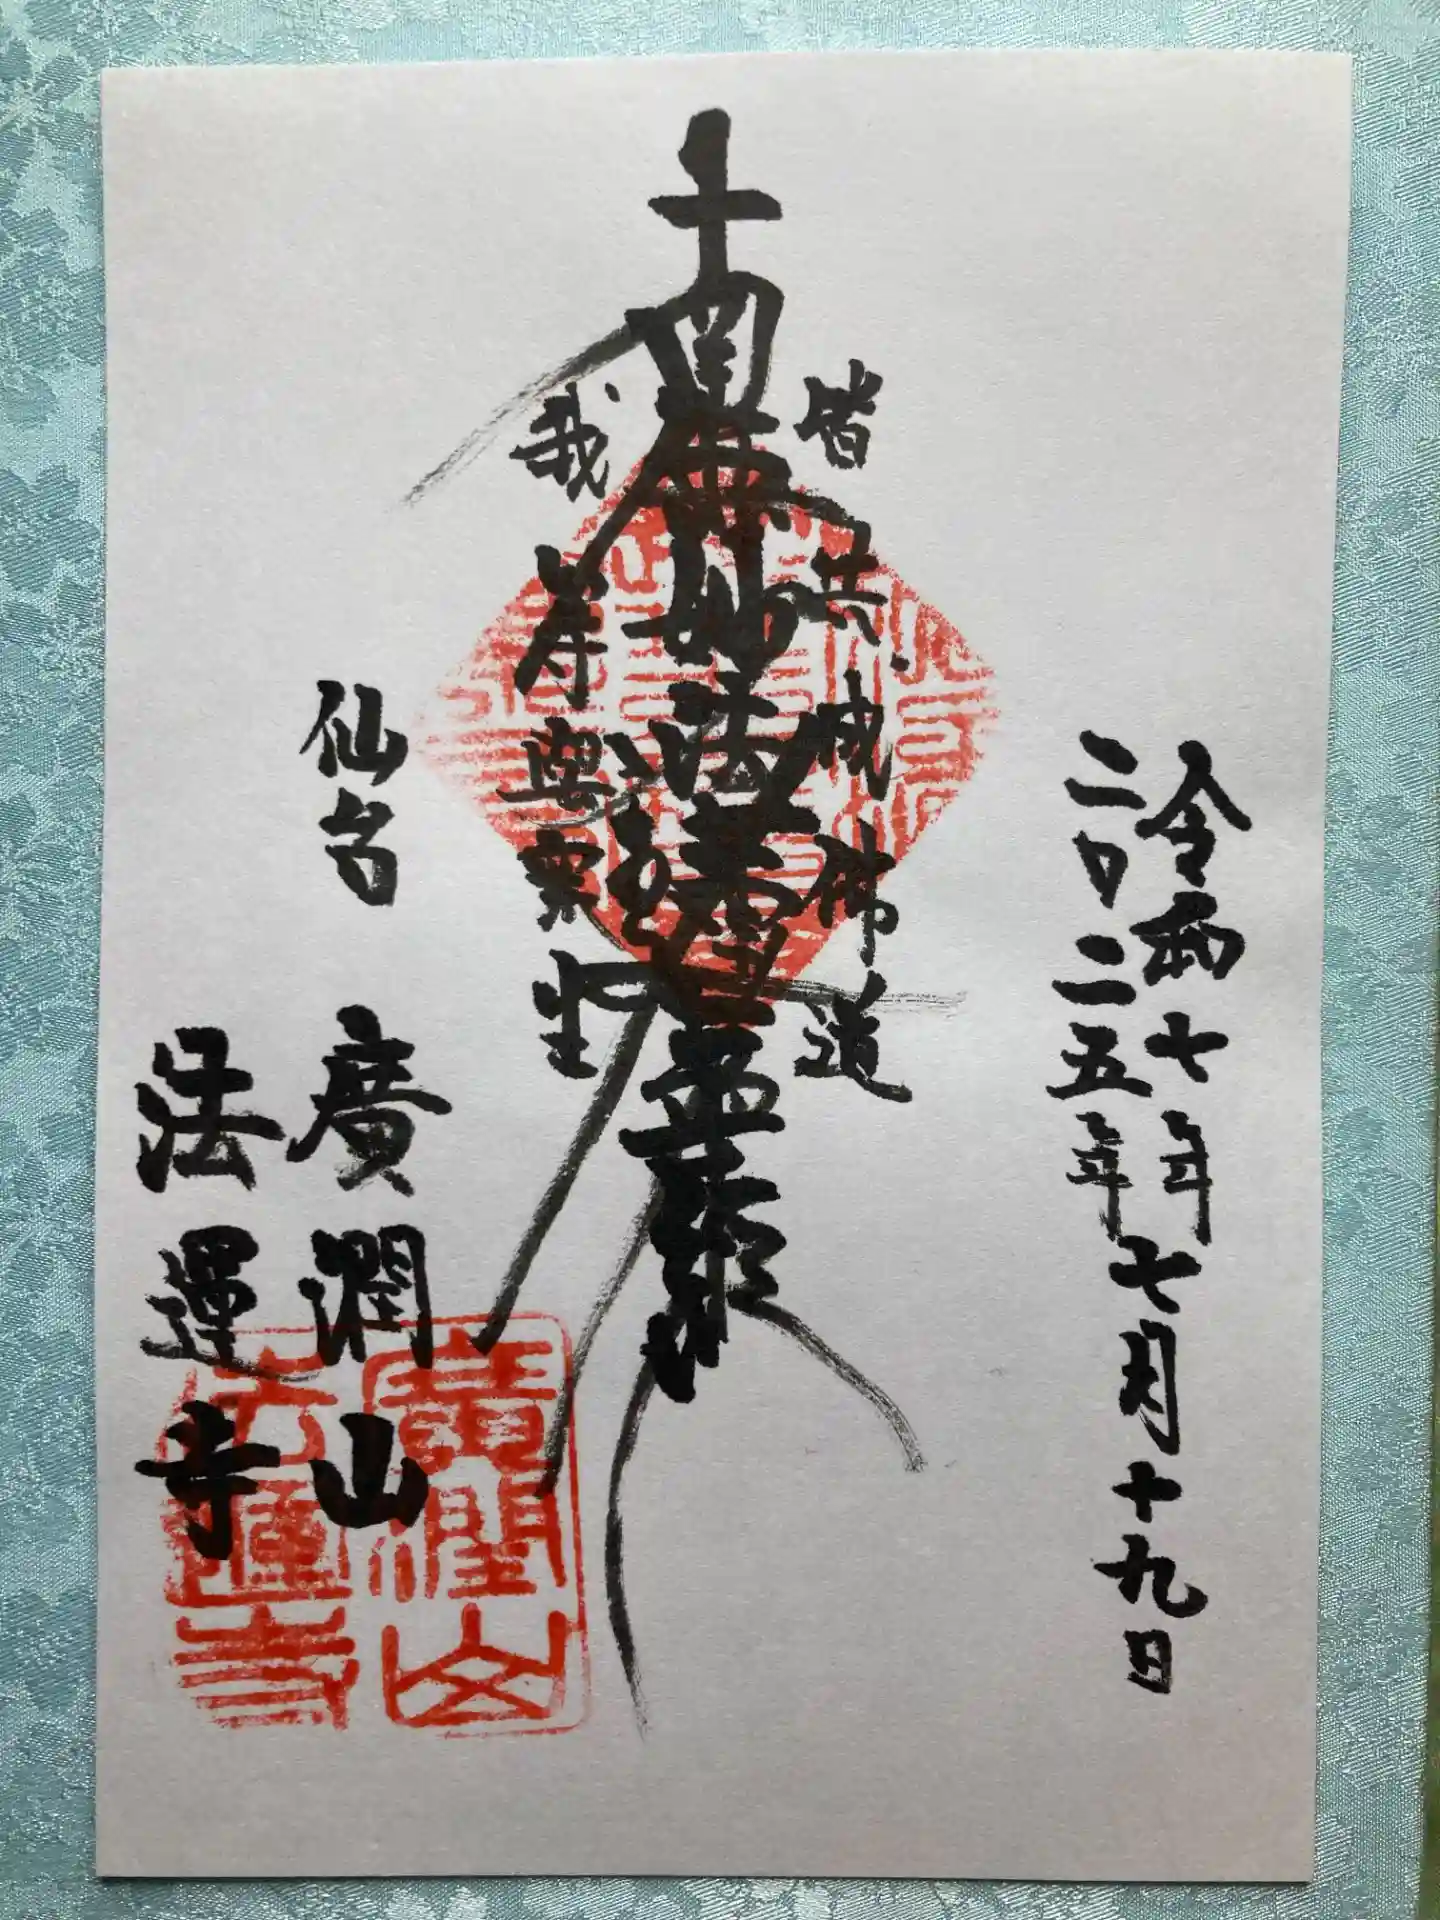 令和七年
二〇二五年
七月十九日
皆共成佛道
南無妙法蓮華經
我等與衆生
仙台
廣潤山
法運寺
廣潤山
法運寺